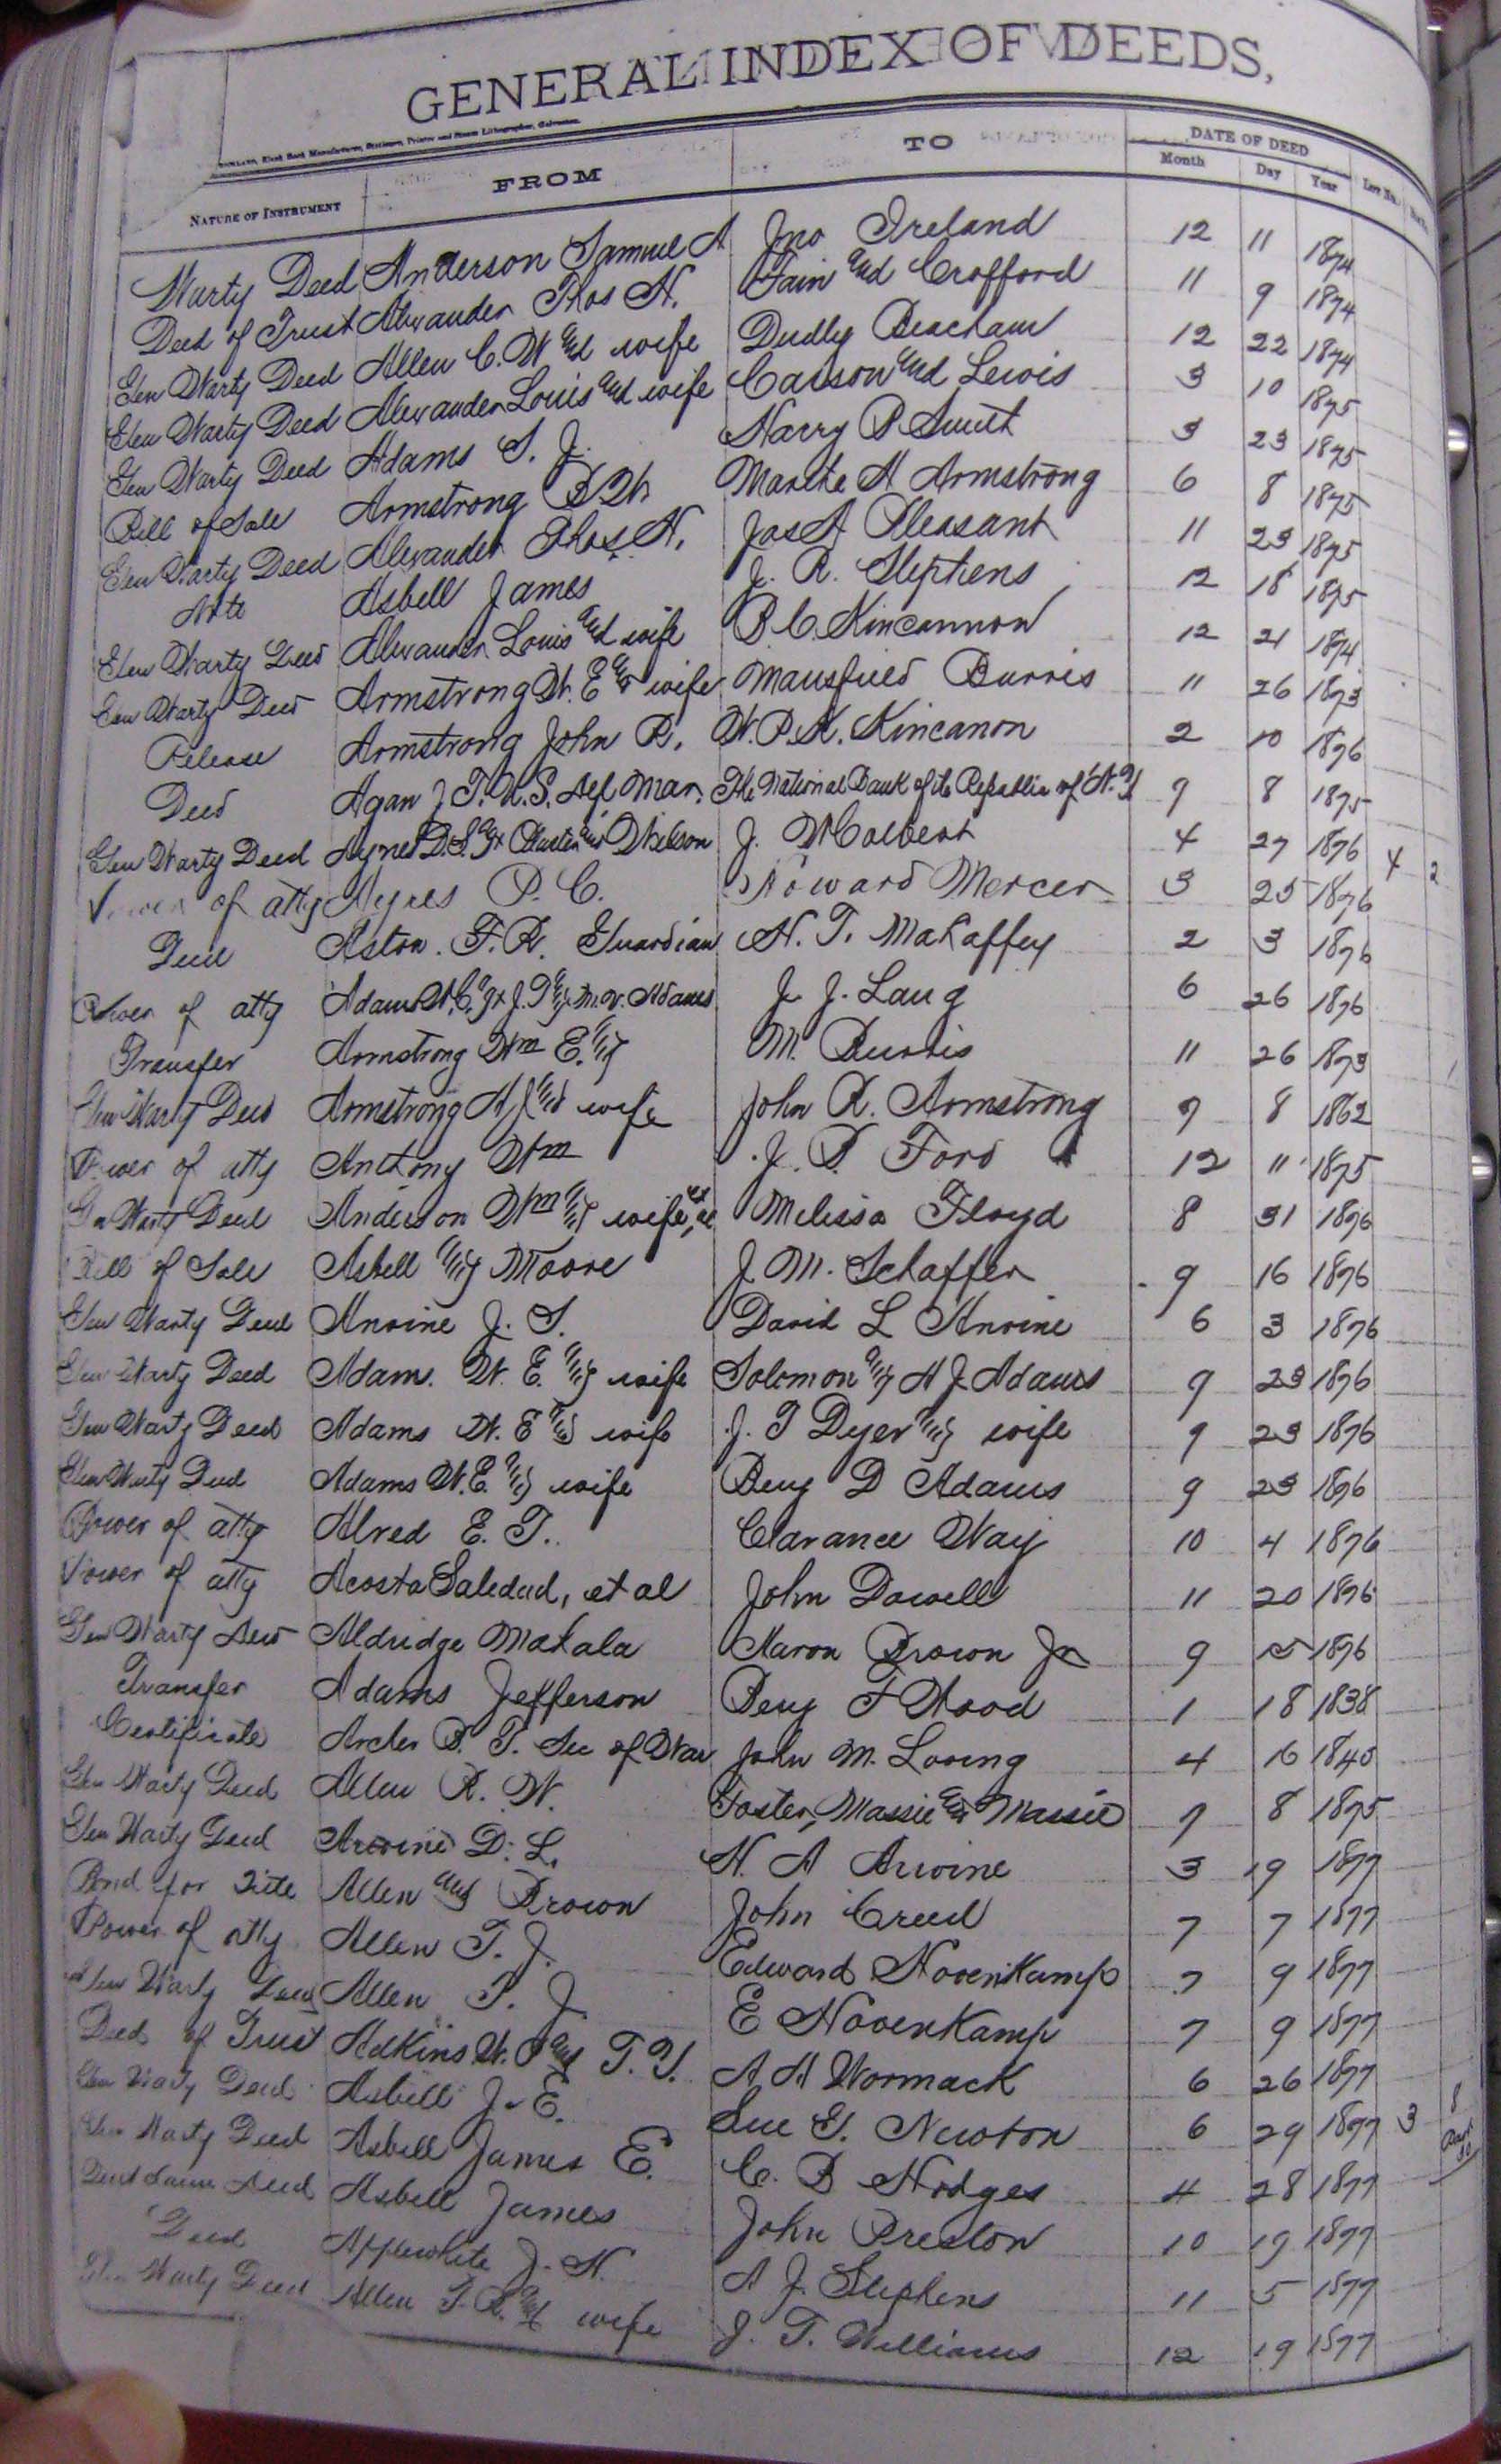 GENERAL INDEX OF DEEDS,
NATURE OF INSTRUMENT FROM TO DATE OF DEED Month Day Year
Warty Deed Anderson Samuel A Jno Ireland 12 11 1874
Deed of Trust Alexander Thos H. Fain and Crofford 11 9 1874
Gen Warty Deed Allen C. W and wife Dudly Beacham 12 22 1874
Gen Warty Deed Alexander Louis and wife Carson and Lewis 3 10 1875
Gen Warty Deed Adams S. J. Harry P Smith 3 23 1875
Bill of Sale Armstrong Martha A Armstrong 6 8 1875
Gen Warty Deed Alexander Thos H. Jas A Pleasant 11 23 1875
Note Asbell James J. R. Stephens 12 18 1875
Gen Warty Deed Alexander Louis and wife Kincannon 12 21 1874
Gen Warty Deed Armstrong W. E and wife Mansfield Burris 11 26 1873
Release Armstrong John R. W. P. K. Kincanon 2 10 1876
Deed Agan J. T. U. S. Dep Mar. The National Bank of the Republic of N. Y 9 8 1875
Gen Warty Deed Wilson J. W Colbert 4 27 1876 4 2
Power of atty Ayres P. C. Howard Mercer 3 25 1876
Deed Aston F. R. Guardian H. T. Mahaffey 2 3 1876
Power of atty Adams M. V. Adams J. J. Lang 6 26 1876
Transfer Armstrong Wm E. M. Burris 11 26 1873
Gen Warty Deed Armstrong A J and wife John R. Armstrong 9 8 1862
Power of atty Anthony Wm J. B. Ford 12 11 1875
Gen Warty Deed Anderson Wm and wife et al Melissa Floyd 8 31 1876
Bill of Sale Asbell and Moore J. M. Schaffer 9 16 1876
Gen Warty Deed Arvine J. S. David L Arvine 6 3 1876
Gen Warty Deed Adams W. E. and wife Solomon and A J Adams 9 23 1876
Gen Warty Deed Adams W. E and wife J. T Dyer and wife 9 23 1876
Gen Warty Deed Adams W. E. and wife Benj D Adams 9 23 1876
Power of atty Alred E. T. Clarance Way 10 4 1876
Power of atty Acosta Saledad, et al John Dowell 11 20 1876
Gen Warty Deed Aldridge Mahala Aaron Brown Jr 9 15 1876
Transfer Adams Jefferson Benj F Wood 1 18 1838
Certificate Archer B. T. Sec of War John M. Loving 4 16 1840
Gen Warty Deed Allen R. W. Foster, Massie and Massie 7 8 1875
Gen Warty Deed Arvine D. L. N. A Arvine 3 19 1877
Bond for Title Allen and Brown John Creed 7 7 1877
Power of atty Allen T. J. Edward Hovenkamp 7 9 1877
Gen Warty Deed Allen T. J E Hovenkamp 7 9 1877
Deed of Trust Adkins W. and T. Y. A A Wormack 6 26 1877
Gen Warty Deed Asbell J. E. Sue E. Newton 6 29 1877 3 8
Gen Warty Deed Asbell James E. C. B Hodges 4 28 1877
Deed Asbell James John Preston 10 19 1877
Deed Applewhite J. H. A J. Stephens 11 5 1877
Gen Warty Deed Allen T. R. and wife J. T. Williams 12 19 1877